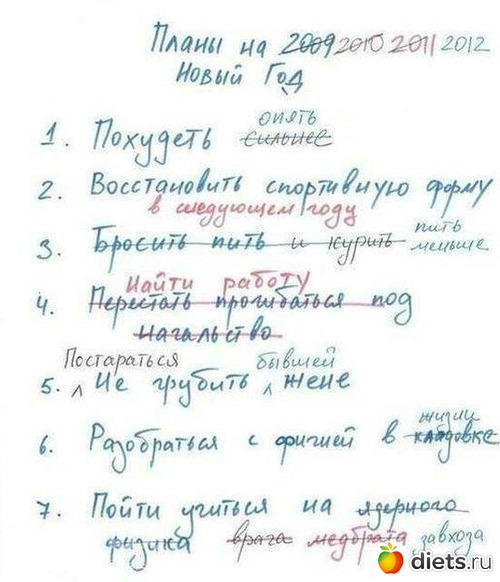 Планы на 2009 2010 2011 2012
Новый Год
опять
1. Похудеть сильнее
2. Восстановить спортивную форму
в следующем году
пить
3. Бросить пить и курить меньше
Найти работу
4. Перестать прогибаться под
начальство
Постараться бывшей
5. Не грубить жене
жизни
6. Разобраться с фигнёй в кладовке
7. Пойти учиться на ядерного
физика врача медбрата завхоза
diets.ru